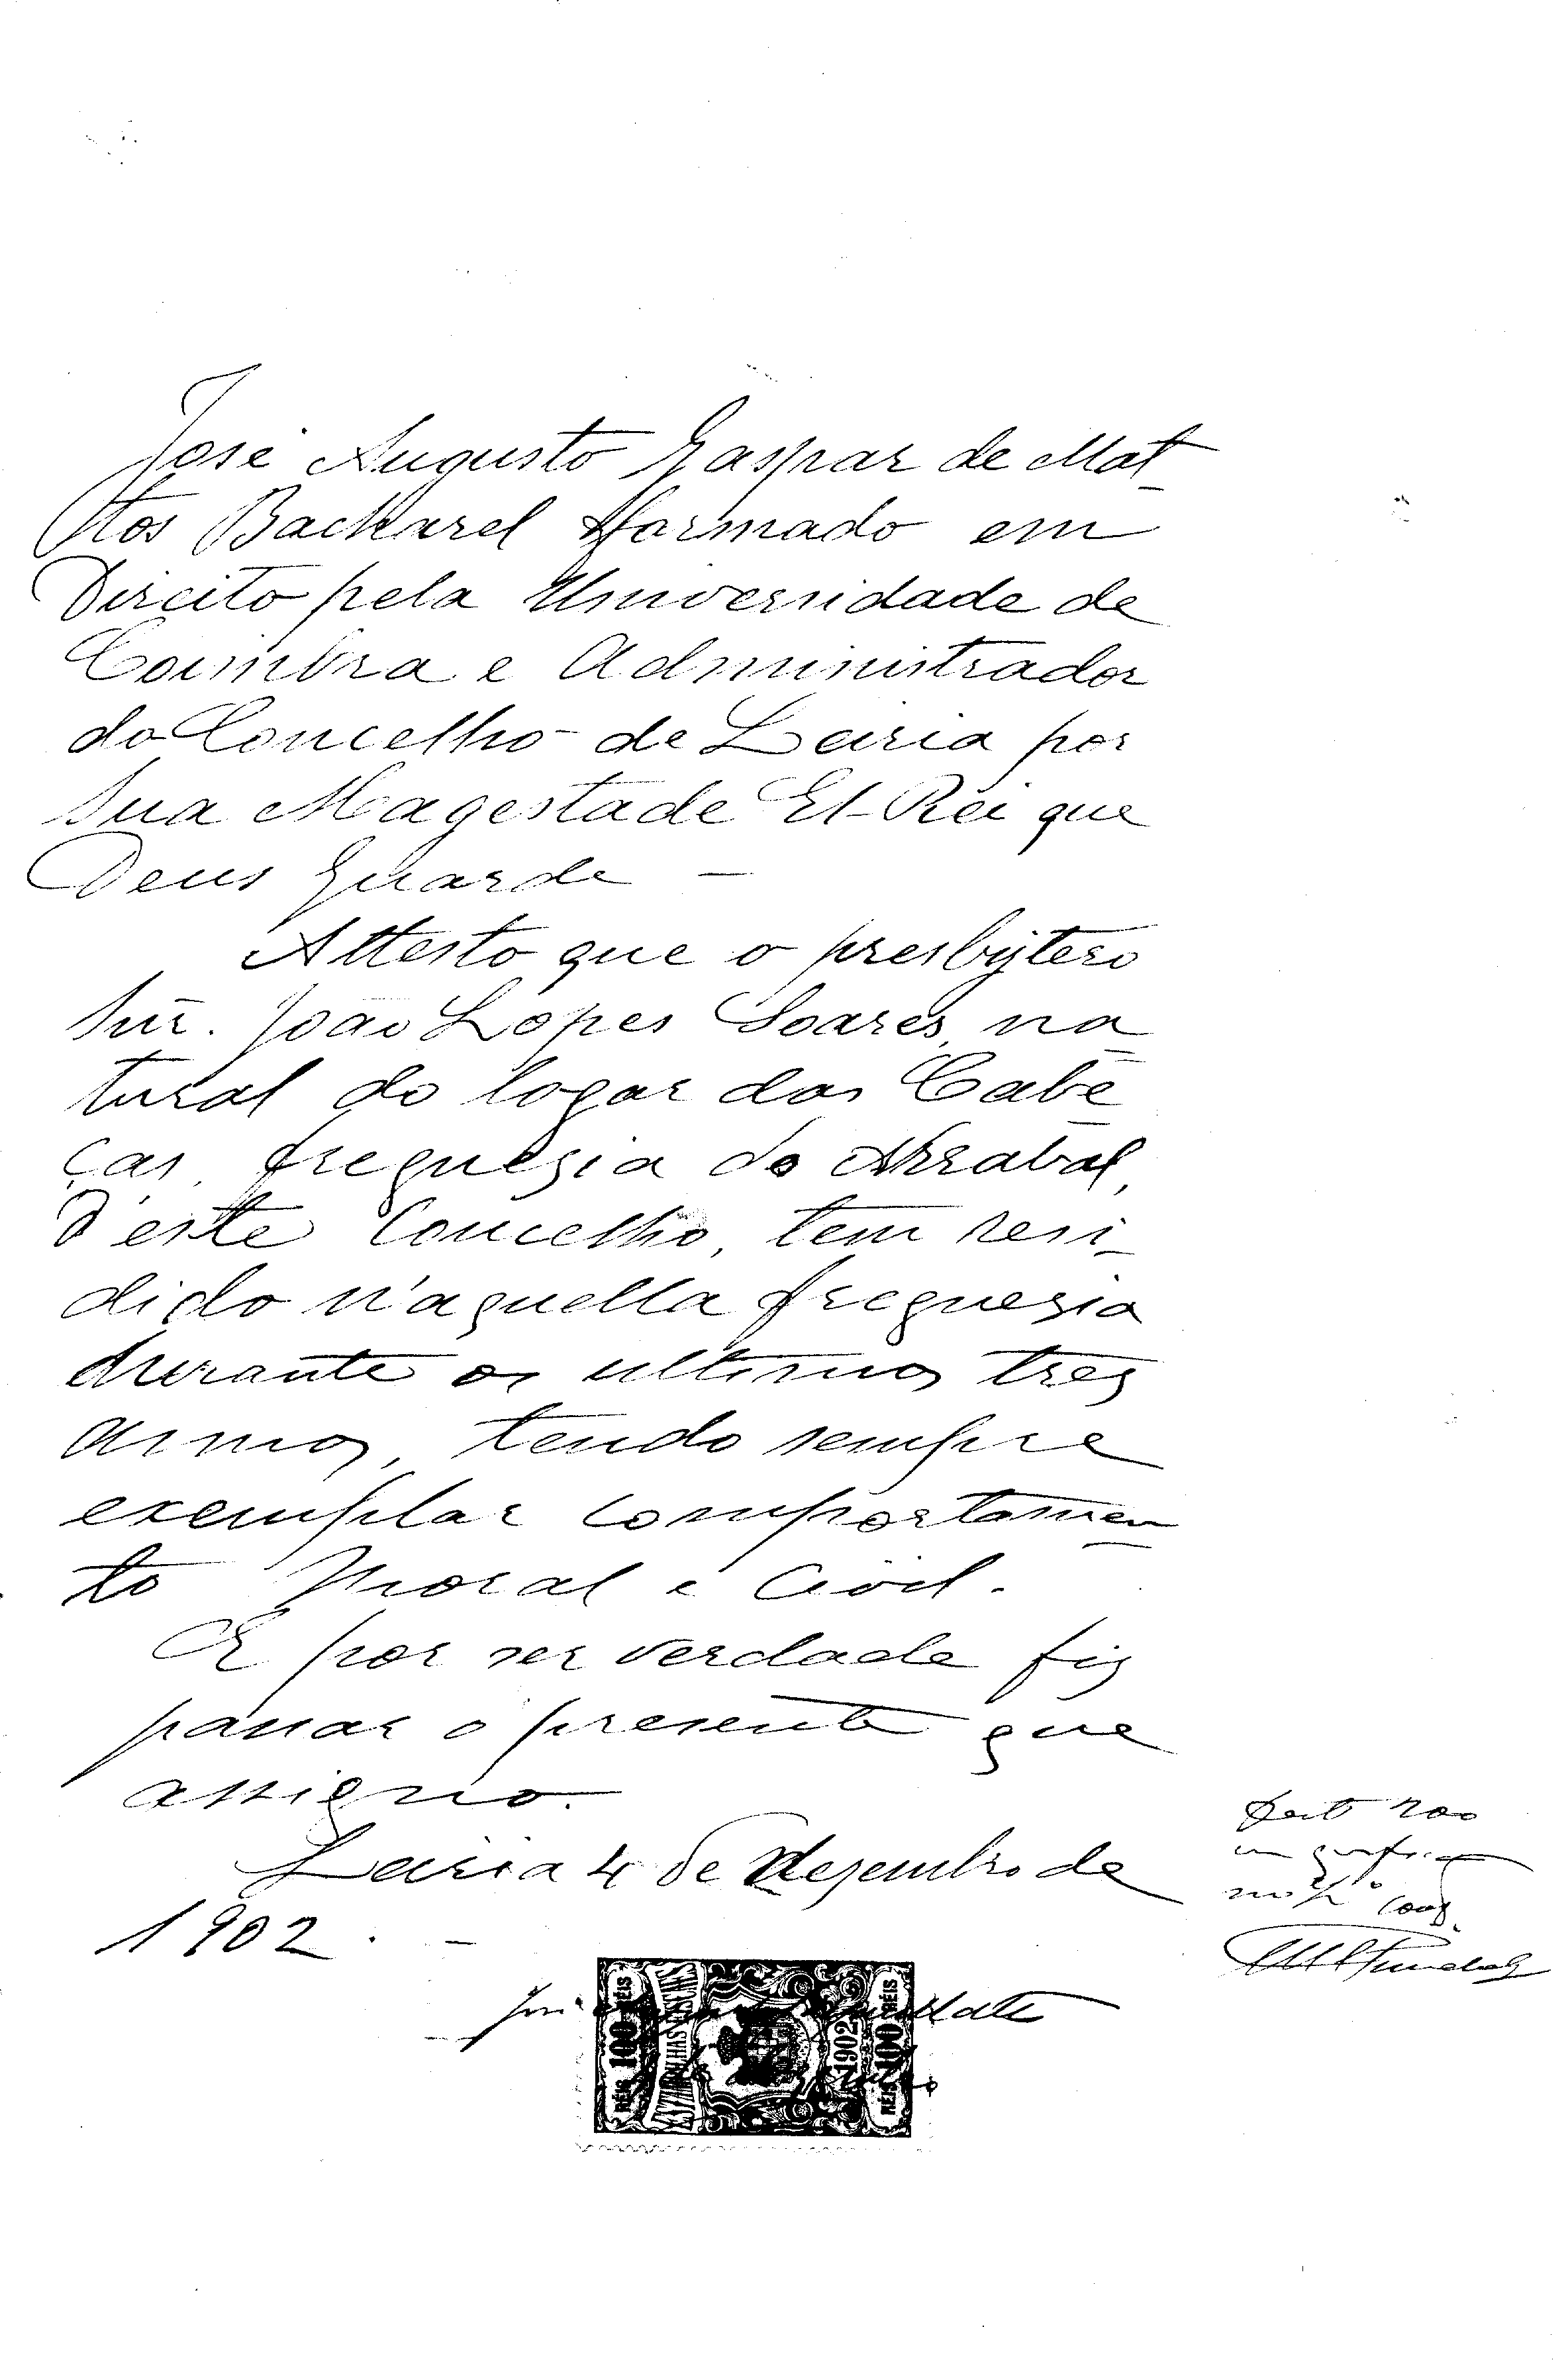 José Augusto Gaspar de Mat-
tos Bacharel formado em
Direito pela Universidade de
Coimbra e Administrador
do Concelho de Leiria por
Sua Magestade El-Rei que
Deus Guarde —
Attesto que o presbytero
Snr. João Lopes Soares, na
tural do logar das Cabe
ças, freguesia do Arrabal,
d'este Concelho, tem resi-
dido n'aquella freguesia
durante os ultimos tres
annos, tendo sempre
exemplar comportamen
to Moral e Civil.
E por ser verdade fiz
passar o presente que
assigno.
Leiria 4 de Dezembro de
1902. —
José Matto
RÉIS 100 RÉIS
ESTAMPILHAS
1902
RÉIS 100 RÉIS